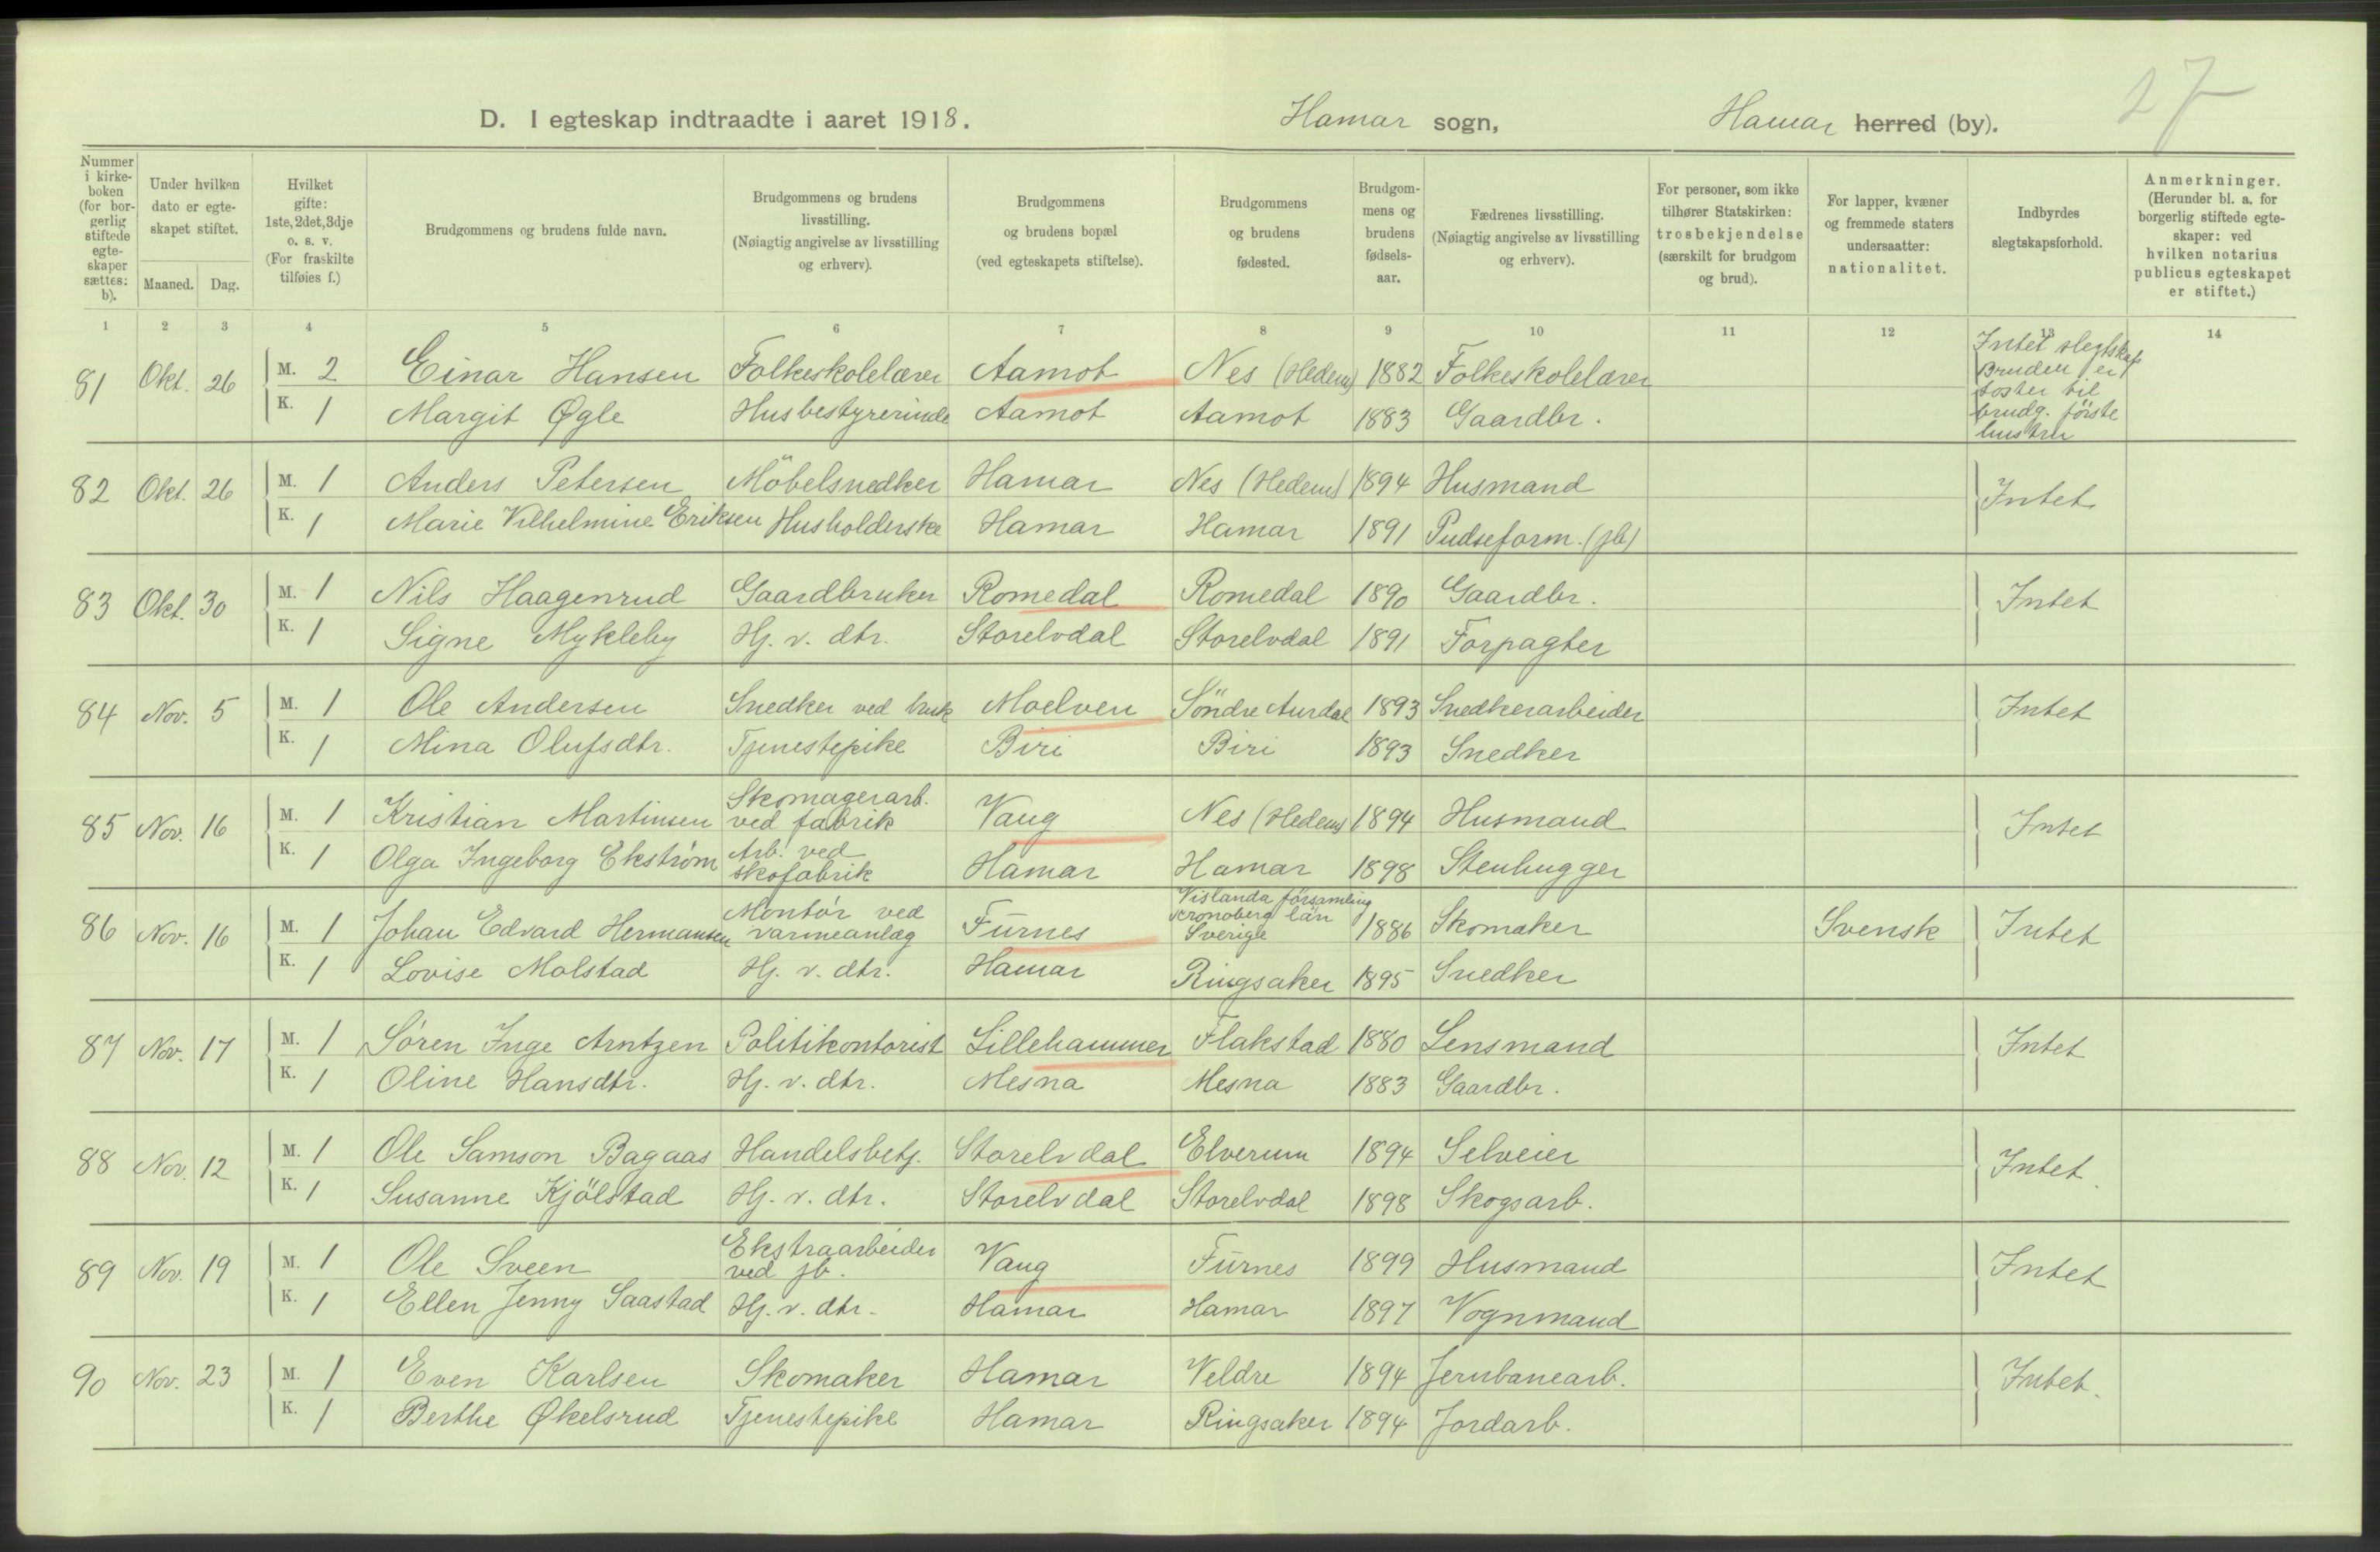 27
D. I egteskap indtraadte i aaret 1918. Hamar sogn, Hamar herred (by).
Nummer i kirkeboken (for borgerlig stiftede egteskaper sættes: b). Under hvilken dato er egteskapet stiftet. Maaned. Dag. Hvilket gifte: 1ste, 2det, 3dje o. s. v. (For fraskilte tilføies f.) Brudgommens og brudens fulde navn. Brudgommens og brudens livsstilling. (Nøiagtig angivelse av livsstilling og erhverv). Brudgommens og brudens bopæl (ved egteskapets stiftelse). Brudgommens og brudens fødested. Brudgommens og brudens fødselsaar. Fædrenes livsstilling. (Nøiagtig angivelse av livsstilling og erhverv). For personer, som ikke tilhører Statskirken: trosbekjendelse (særskilt for brudgom og brud). For lapper, kvæner og fremmede staters undersaatter: nationalitet. Indbyrdes slegtskapsforhold. Anmerkninger. (Herunder bl. a. for borgerlig stiftede egteskaper: ved hvilken notarius publicus egteskapet er stiftet.)
1 2 3 4 5 6 7 8 9 10 11 12 13 14
81 Okt. 26 M. 2 Einar Hansen Folkeskolelærer Aamot Nes (Hedem) 1882 Folkeskolelærer Intet slegtskap Bruden er søster til brudg. første hustru
K. 1 Margit Øgle Husbestyrerinde Aamot Aamot 1883 Gaardbr.
82 Okt. 26 M. 1 Anders Petersen Möbelsnedker Hamar Nes (Hedem) 1894 Husmand Intet
K. 1 Marie Vilhelmine Eriksen Husholderske Hamar Hamar 1891 Pudseform. (jb)
83 Okt. 30 M. 1 Nils Haagenrud Gaardbruker Romedal Romedal 1890 Gaardbr. Intet
K. 1 Signe Mykleby Hj. v. dtr. Storelvdal Storelvdal 1891 Forpagter
84 Nov. 5 M. 1 Ole Andersen Snedker ved bruk Moelven Söndre Aurdal 1893 Snedkerarbeider Intet
K. 1 Mina Olufsdtr. Tjenestepike Biri Biri 1893 Snedker
85 Nov. 16 M. 1 Kristian Martinsen Skomagerarb. ved fabrik Vang Nes (Hedem) 1894 Husmand Intet
K. 1 Olga Ingeborg Ekstrøm Arb. ved skofabrik Hamar Hamar 1898 Stenhugger
86 Nov. 16 M. 1 Johan Edvard Hermansen Montör ved varmeanlæg Furnes Vislanda församling Kronoberg län Sverige 1886 Skomaker Svensk Intet
K. 1 Lovise Molstad Hj. v. dtr. Hamar Ringsaker 1895 Snedker
87 Nov. 17 M. 1 Sören Inge Arntzen Politikontorist Lillehammer Flakstad 1880 Lensmand Intet
K. 1 Oline Hansdtr. Hj. v. dtr. Mesna Mesna 1883 Gaardbr.
88 Nov. 12 M. 1 Ole Samson Bagaas Handelsbetj. Storelvdal Elverum 1894 Selveier Intet.
K. 1 Susanne Kjölstad Hj. v. dtr. Storelvdal Storelvdal 1898 Skogsarb.
89 Nov. 19 M. 1 Ole Sveen Ekstraarbeider ved jb. Vang Furnes 1899 Husmand Intet
K. 1 Ellen Jenny Saastad Hj. v. dtr. Hamar Hamar 1897 Vognmand
90 Nov. 23 M. 1 Even Karlsen Skomaker Hamar Veldre 1894 Jernbanearb. Intet.
K. 1 Berthe Økelsrud Tjenestepike Hamar Ringsaker 1894 Jordarb.